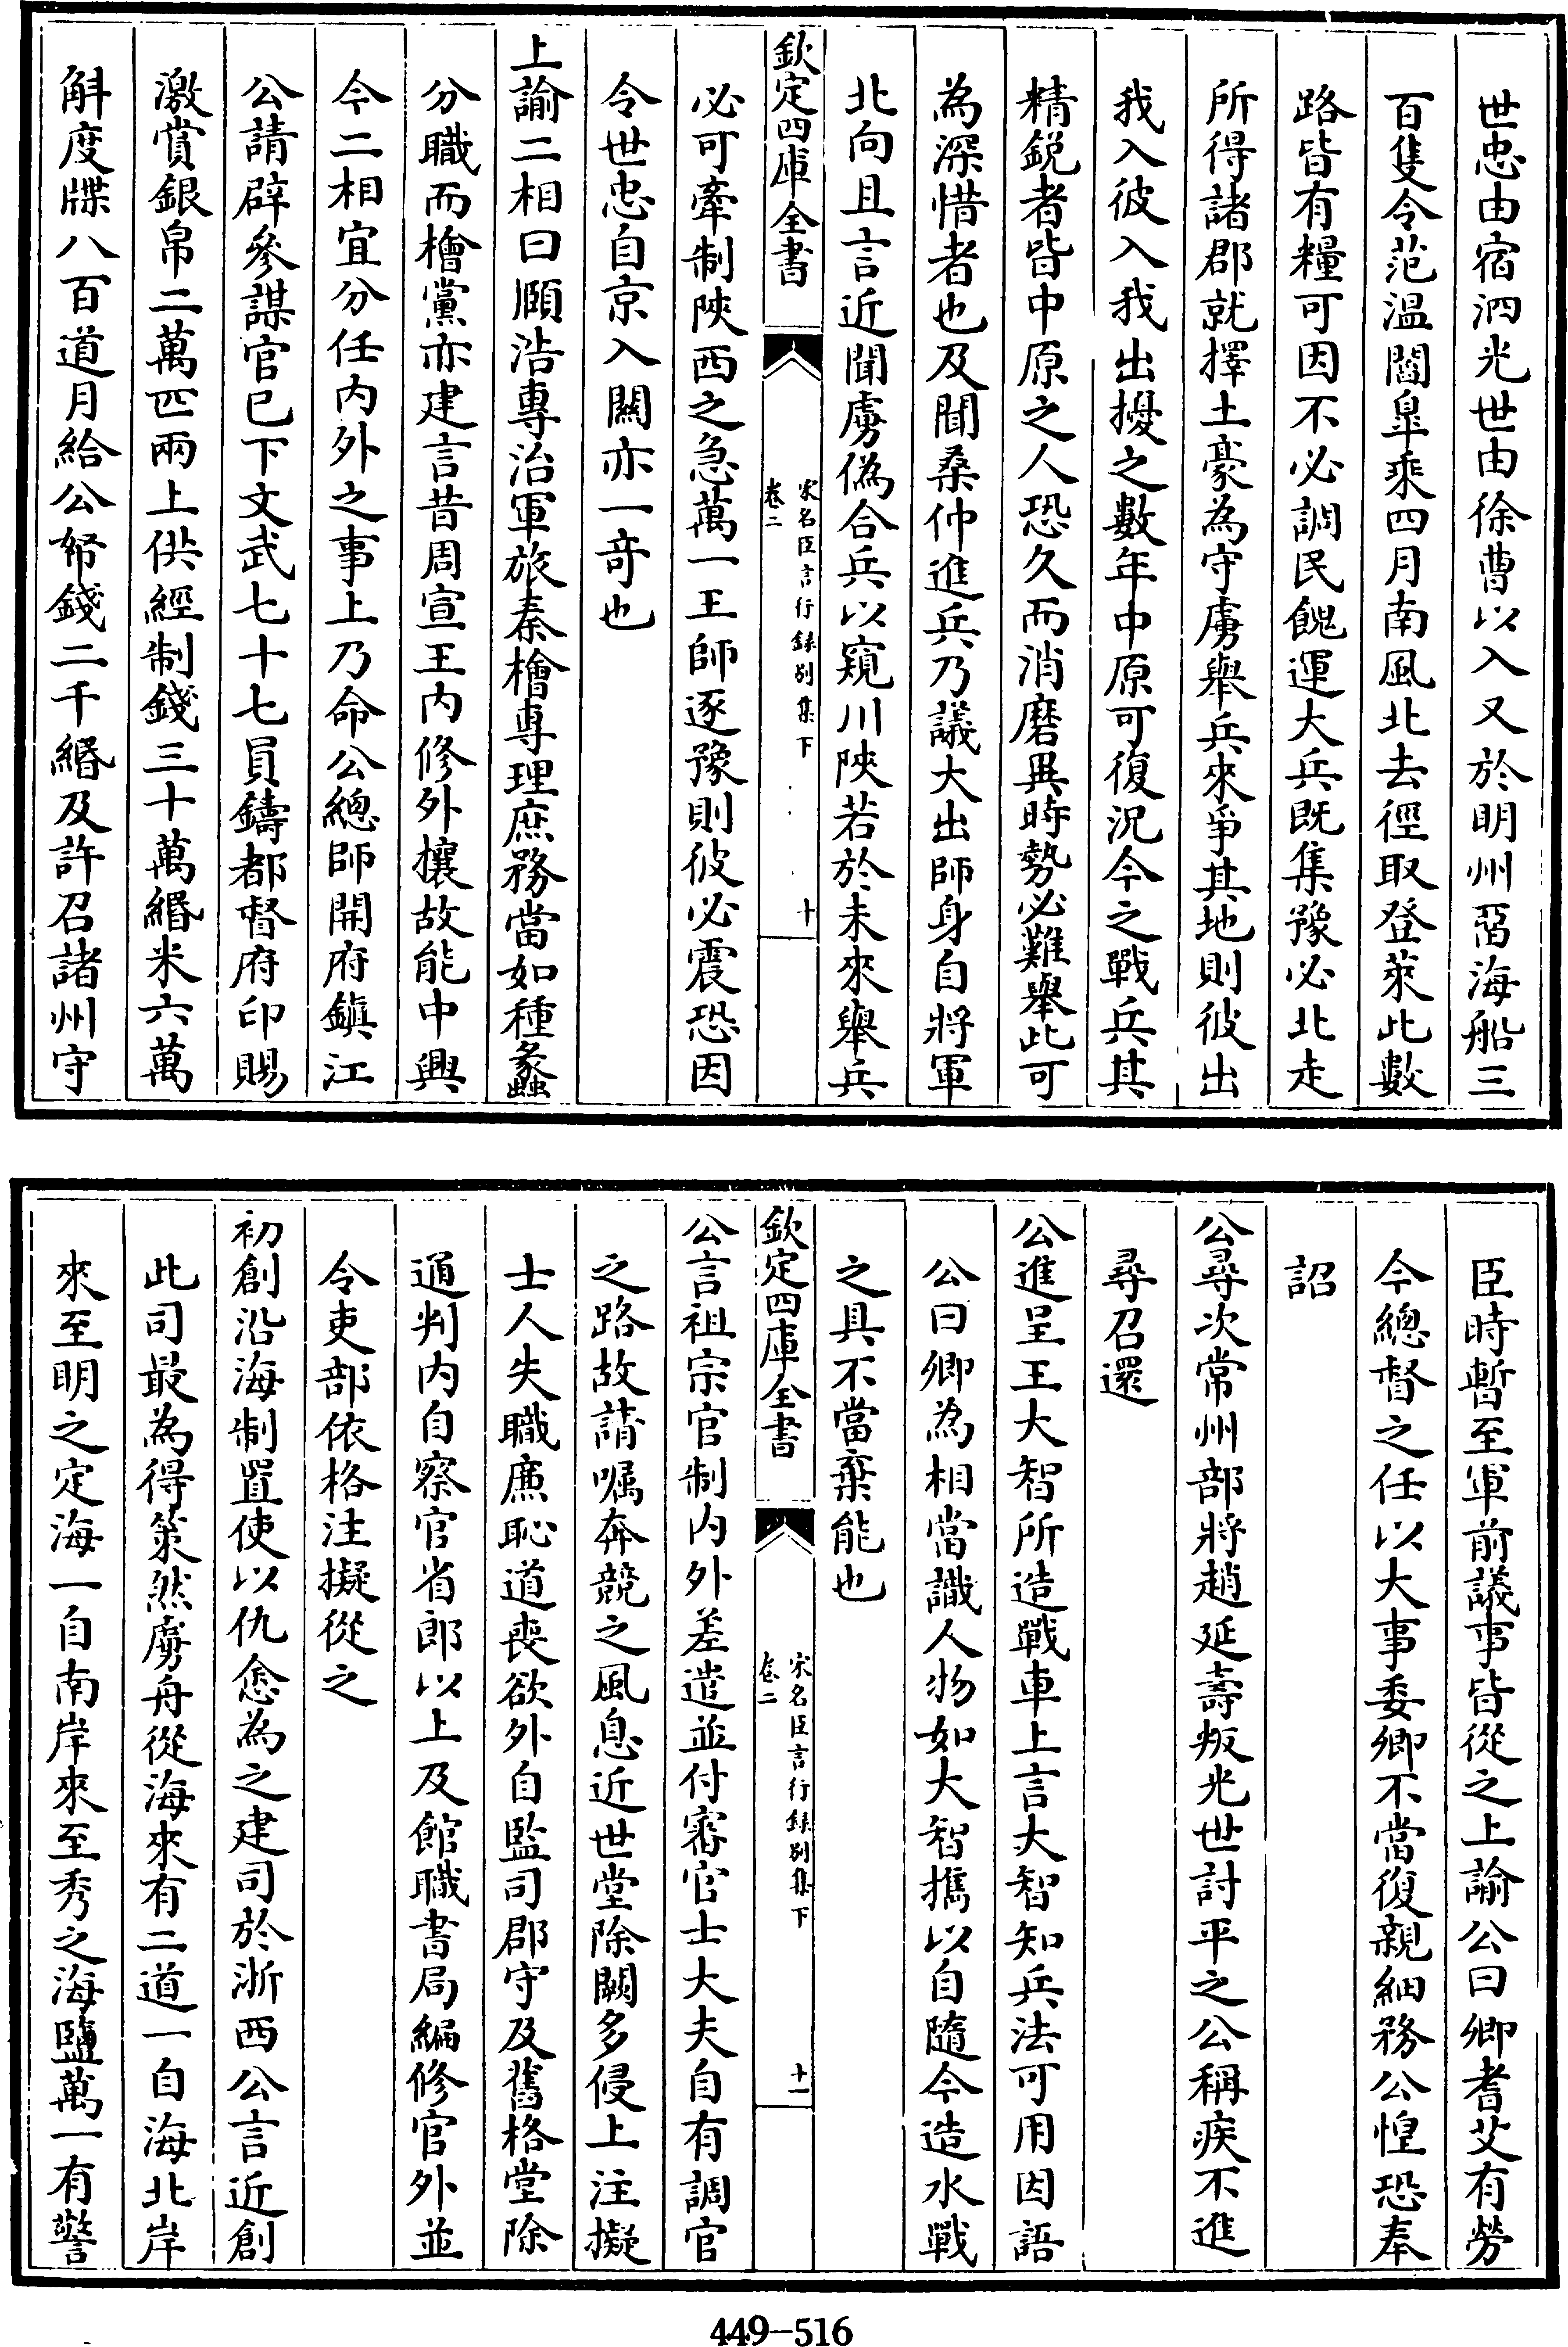 世忠由宿泗光世由徐曹以入又於明州畱海船三
百隻令范温閻臯乘四月南風北去徑取登萊此數
路皆有糧可因不必調民餽運大兵既集豫必北走
所得諸郡就擇土豪為守虜舉兵來爭其地則彼出
我入彼入我出擾之數年中原可復況今之戰兵其
精鋭者皆中原之人恐久而消磨異時勢必難舉此可
為深惜者也及聞桑仲進兵乃議大出師身自將軍
北向且言近聞虜偽合兵以窺川陜若於未來舉兵
欽定四庫全書
宋名臣言行録别集下
卷二
十
必可牽制陜西之急萬一王師逐豫則彼必震恐因
令世忠自京入闗亦一竒也
上諭二相曰頤浩專治軍旅秦檜専理庶務當如種蠡
分職而檜黨亦建言昔周宣王内修外攘故能中興
今二相宜分任内外之事上乃命公總師開府鎮江
公請辟參謀官已下文武七十七員鑄都督府印賜
激賞銀帛二萬四兩上供經制錢三十萬緡米六萬
斛度牒八百道月給公帑錢二千緡及許召諸州守
臣時暫至軍前議事皆從之上諭公曰卿耆艾有勞
今總督之任以大事委卿不當復親細務公惶恐奉
詔
公尋次常州部將趙延壽叛光世討平之公稱疾不進
尋召還
公進呈王大智所造戰車上言大智知兵法可用因語
公曰卿為相當識人物如大智攜以自隨令造水戰
之具不當棄能也
欽定四庫全書
宋名臣言行録别集下
卷二
十一
公言祖宗官制内外差遣並付審官士大夫自有調官
之路故請囑奔競之風息近世堂除闕多侵上注擬
士人失職亷恥道喪欲外自監司郡守及舊格堂除
通判内自察官省郎以上及館職書局編修官外並
令吏部依格注擬從之
初創沿海制置使以仇悆為之建司於浙西公言近創
此司最為得策然虜舟從海來有二道一自海北岸
來至明之定海一自南岸來至秀之海鹽萬一有警
449-516